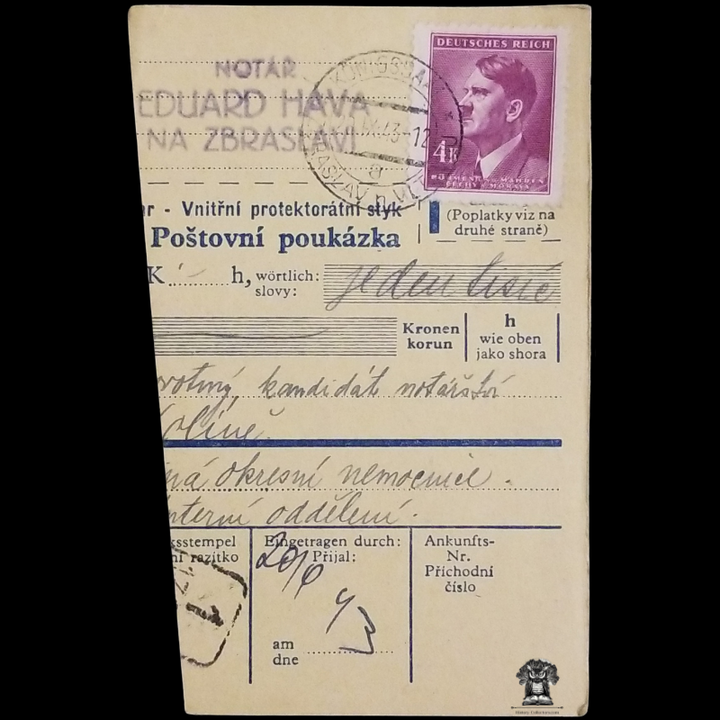 NOTÁŘ
EDUARD HAVA
NA ZBRASLAVI
DEUTSCHES REICH
4K
BÖHMEN UND MÄHREN
ČECHY A MORAVA
- Vnitřní protektorátní styk
Poštovní poukázka
(Poplatky viz na
druhé straně)
K h, wörtlich:
slovy: jeden tisíc
Kronen
korun
h
wie oben
jako shora
kandidát notářství
okresní nemocnice.
interní oddělení.
razítko
Eingetragen durch:
Přijal:
20/9
43
am
dne
Ankunfts-
Nr.
Příchodní
číslo
1